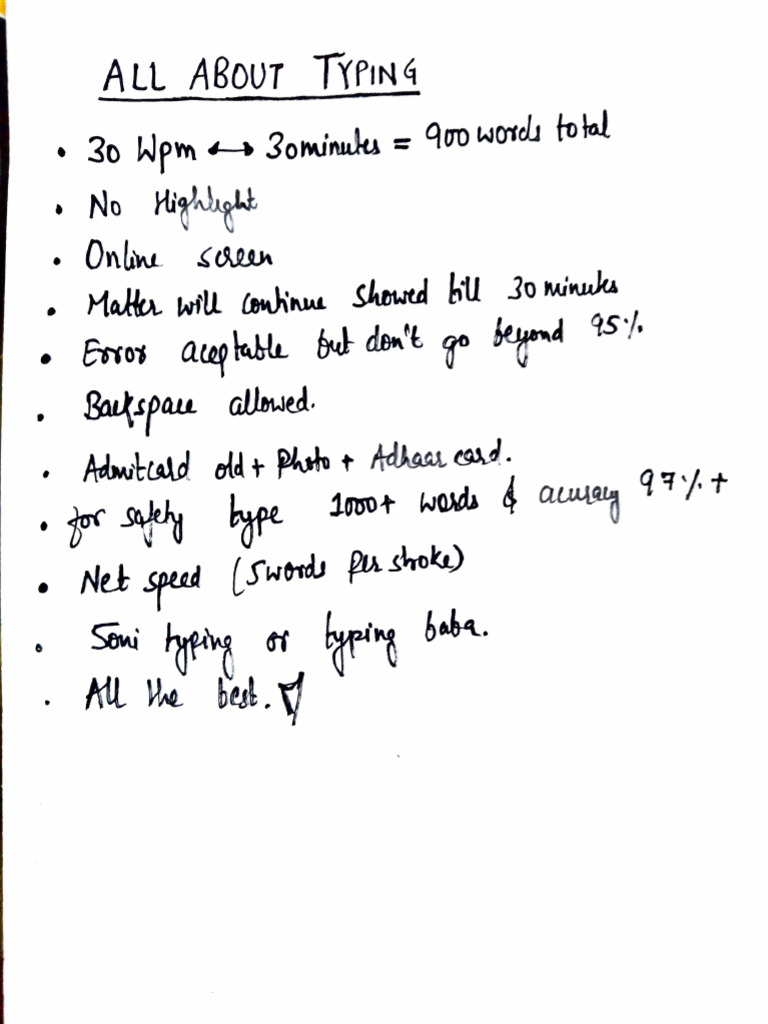 ALL ABOUT TYPING
• 30 Wpm ↔ 30minutes = 900 words total
• No Highlight
• Online screen
• Matter will continue showed till 30 minutes
• Error aceptable but don't go beyond 95%.
• Backspace allowed.
• Admitcard old + Photo + Adhaar card.
• for safety type 1000+ words & acuracy 97% +
• Net speed (5words per stroke)
• Soni typing or typing baba.
• All the best.